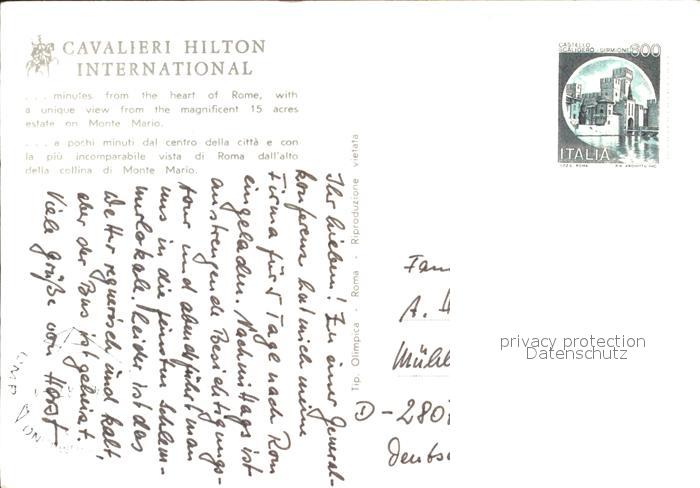 CAVALIERI HILTON
INTERNATIONAL
... minutes from the heart of Rome, with
a unique view from the magnificent 15 acres
estate on Monte Mario.
... a pochi minuti dal centro della città e con
la più incomparabile vista di Roma dall'alto
della collina di Monte Mario.
Ihr Lieben! Zu einer General-
konferenz hat mich meine
Firma für 5 Tage nach Rom
eingeladen. Nachmittags ist
anstrengende Besichtigungs-
tour und abends führt man
uns in die feinsten Schlem-
merlokale. Leider ist das
Wetter regnerisch und kalt,
aber der Bus ist geheizt.
Viele Grüße von Horst
Tip. Olimpica - Roma - Riproduzione vietata
CASTELLO
SCALIGERO - SIRMIONE
800
ITALIA
I.P.Z.S. ROMA
Fam
A. H
Mühl
D-280
Deutsc
privacy protection
Datenschutz